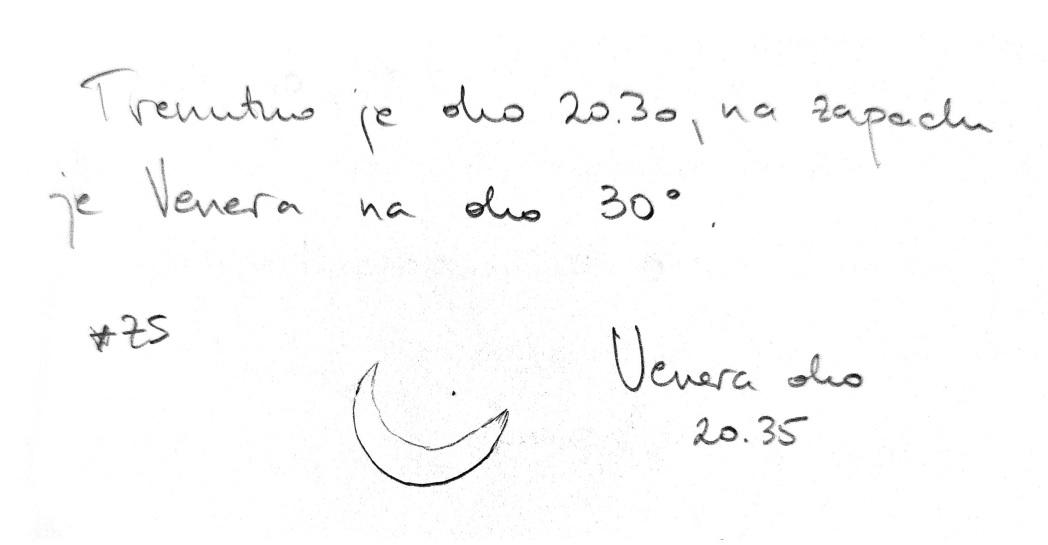 Trenutno je oko 20.30, na zapadu
je Venera na oko 30°.
*ZS
Venera oko
20.35